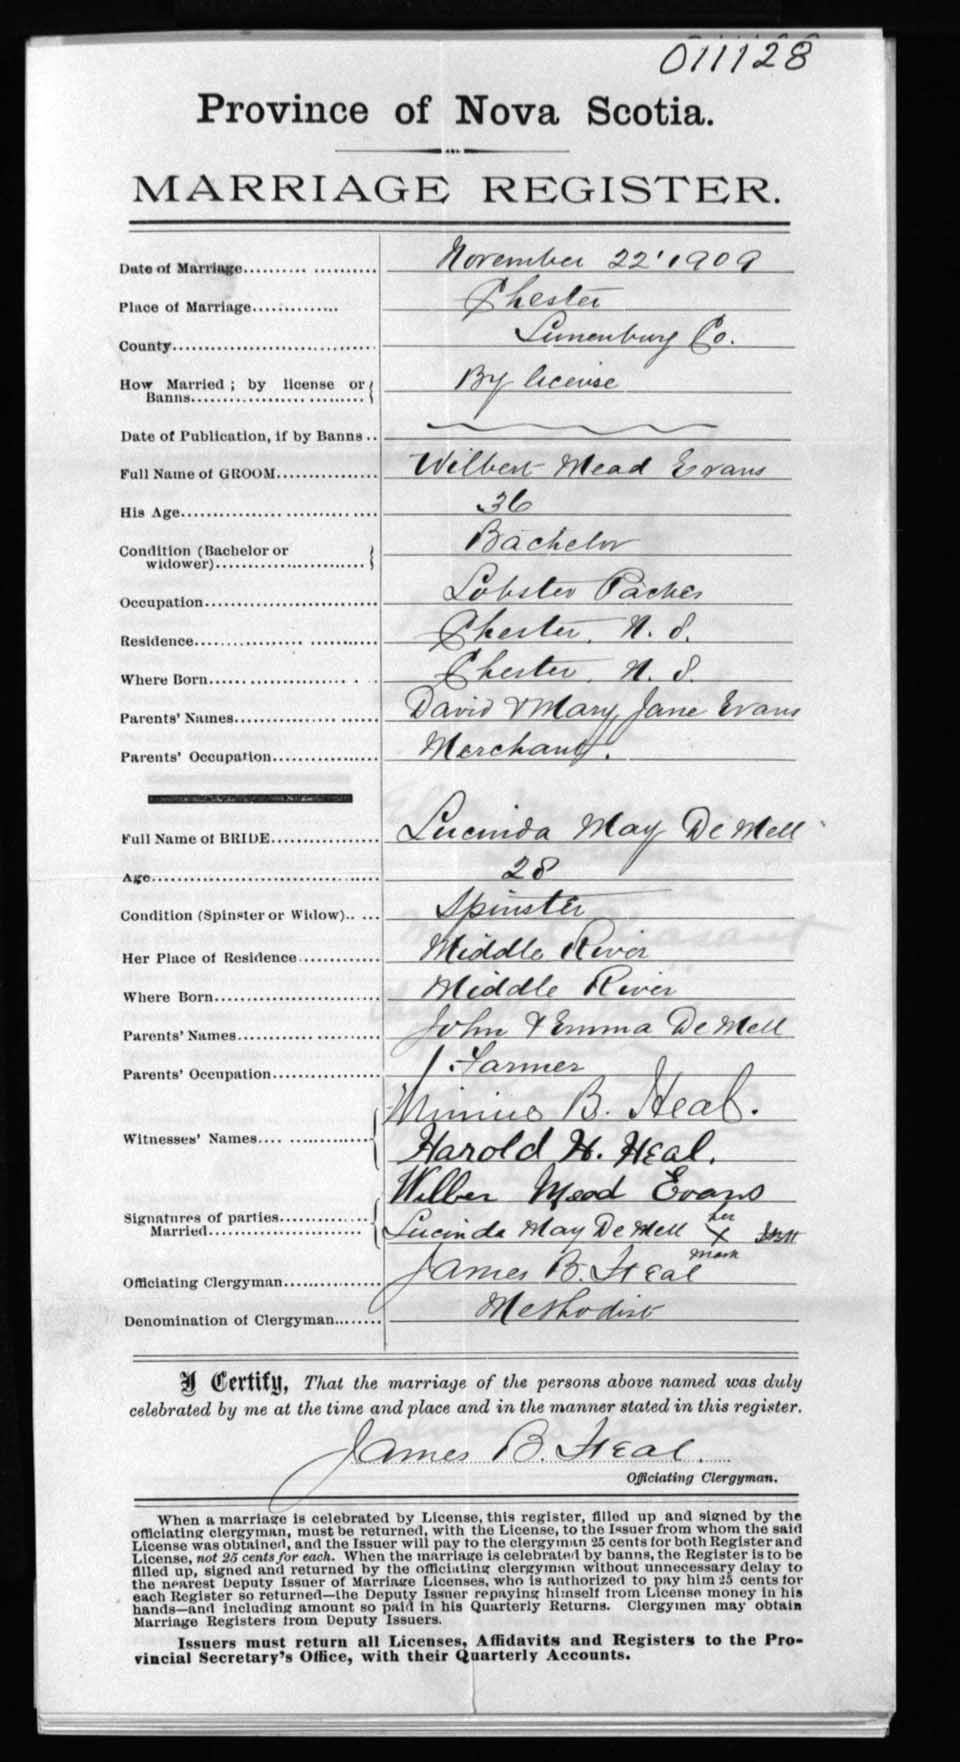 011128
Province of Nova Scotia.
MARRIAGE REGISTER.
Date of Marriage..................... November 22' 1909
Place of Marriage............. Chester
County.............................. Lunenburg Co.
How Married ; by license or By license
Banns..........................
Date of Publication, if by Banns ..
Full Name of GROOM............... Wilbert Mead Evans
His Age............................. 36
Condition (Bachelor or Bachelor
widower)........................
Occupation.......................... Lobster Packer
Residence........................... Chester, N. S.
Where Born......................... Chester, N. S.
Parents' Names..................... David & Mary Jane Evans
Parents' Occupation................ Merchant.
Full Name of BRIDE................ Lucinda May De Mell
Age.................................. 28
Condition (Spinster or Widow)..... Spinster
Her Place of Residence............ Middle River
Where Born......................... Middle River
Parents' Names..................... John & Emma De Mell
Parents' Occupation................ Farmer
B. Heal.
Witnesses' Names.................. Harold H. Heal.
Wilber Mead Evans
Signatures of parties..............
Married........................ Lucinda May De Mell her X mark
Officiating Clergyman.............. James B. Heal
Denomination of Clergyman........ Methodist
I Certify, That the marriage of the persons above named was duly
celebrated by me at the time and place and in the manner stated in this register.
James B. Heal.
Officiating Clergyman.
When a marriage is celebrated by License, this register, filled up and signed by the
officiating clergyman, must be returned, with the License, to the Issuer from whom the said
License was obtained, and the Issuer will pay to the clergyman 25 cents for both Register and
License, not 25 cents for each. When the marriage is celebrated by banns, the Register is to be
filled up, signed and returned by the officiating clergyman without unnecessary delay to
the nearest Deputy Issuer of Marriage Licenses, who is authorized to pay him 25 cents for
each Register so returned—the Deputy Issuer repaying himself from License money in his
hands—and including amount so paid in his Quarterly Returns. Clergymen may obtain
Marriage Registers from Deputy Issuers.
Issuers must return all Licenses, Affidavits and Registers to the Pro-
vincial Secretary's Office, with their Quarterly Accounts.